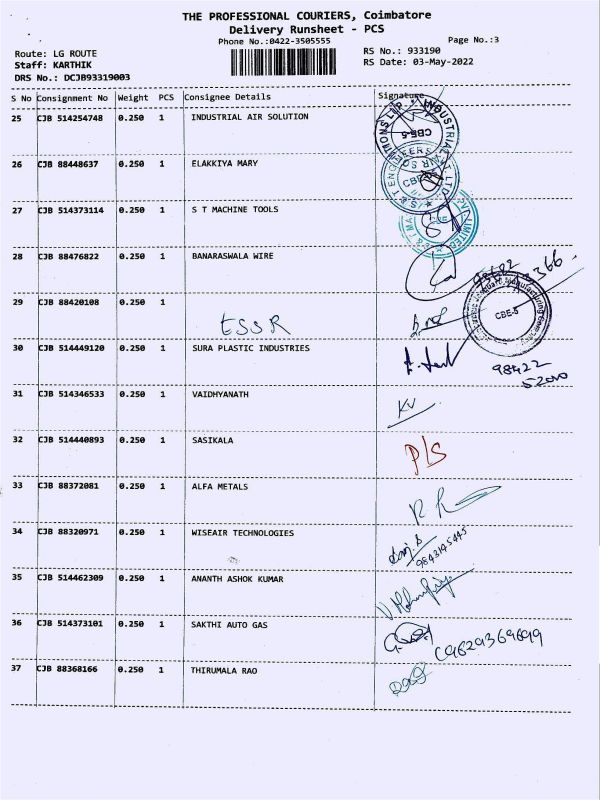 THE PROFESSIONAL COURIERS, Coimbatore
Delivery Runsheet - PCS
Phone No.:0422-3505555
Page No.:3
Route: LG ROUTE
RS No.: 933190
Staff: KARTHIK
RS Date: 03-May-2022
DRS No.: DCJB93319003
S No Consignment No Weight PCS Consignee Details Signature
25 CJB 514254748 0.250 1 INDUSTRIAL AIR SOLUTION
CBE-5
26 CJB 88448637 0.250 1 ELAKKIYA MARY
27 CJB 514373114 0.250 1 S T MACHINE TOOLS
28 CJB 88476822 0.250 1 BANARASWALA WIRE
29 CJB 88420108 0.250 1
ESSR
CBE-5
30 CJB 514449120 0.250 1 SURA PLASTIC INDUSTRIES
98422
52000
31 CJB 514346533 0.250 1 VAIDHYANATH
KV
32 CJB 514440893 0.250 1 SASIKALA
PLS
33 CJB 88372081 0.250 1 ALFA METALS
34 CJB 88320971 0.250 1 WISEAIR TECHNOLOGIES
9843145445
35 CJB 514462309 0.250 1 ANANTH ASHOK KUMAR
36 CJB 514373101 0.250 1 SAKTHI AUTO GAS
37 CJB 88368166 0.250 1 THIRUMALA RAO